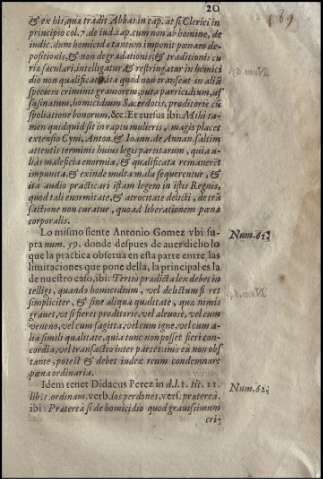 20
189
& ex his, quæ tradit Abbas in cap. at si Clerici in
principio col. 7. de iud. & cap. cum non ab homine, de
iudic. dum homicidæ tantum imponit pœnam de-
positionis, & non degradationis, & traditionis cu
riæ seculari, intelligatur & restringatur in homici
dio non qualificato, ita quod non transeat in aliã
speciem criminis grauiorem, puta parricidium, as
sasinatum, homicidium Sacerdotis, proditorie cũ
spoliatione bonorum, &c. Et rursus ibi: Mihi ta-
men quidquid sit in raptu mulieris, magis placet
extensio Cyni, Anton. & Ioann. de Annan. saltim
attentis terminis huius legis partitarum, quia a-
liàs maleficia enormia, & qualificata remanerẽt
impunita, & exinde multa mala sequerentur, &
ita audio practicari istam legem in istis Regnis,
quod tali enormitate, & atrocitate delicti, de trã
sactione non curatur, quoad liberationem pœnæ
corporalis.
Lo mismo siente Antonio Gomez vbi su-
pra num. 59. donde despues de auer dicho lo
que la practica obserua en esta parte entre las
limitaciones que pone della, la principal es la
de nuestro caso, ibi: Tertio prædicta lex debet in
telligi, quando homicidium, vel delictum fi ret
simpliciter, & sine aliqua qualitate, quæ nimis
grauet, vt si fieret proditorie, vel aleuose, vel cum
veneno, vel cum sagitta, vel cum igne, vel cum a-
lia simili qualitate, quia tunc non posset fieri con-
cordia, vel transactio inter partes: imo ea non obs
tante, potest & debet iudex reum condemnare
pœna ordinaria.
Idem tenet Didacus Perez in d. l. 1. tit. 11.
lib. 1. ordinam. verb. los perdones, vers. præterea.
ibi: Præterea si de homicidio quod grauissimum
cri-
Num. 61.
Num. 62.